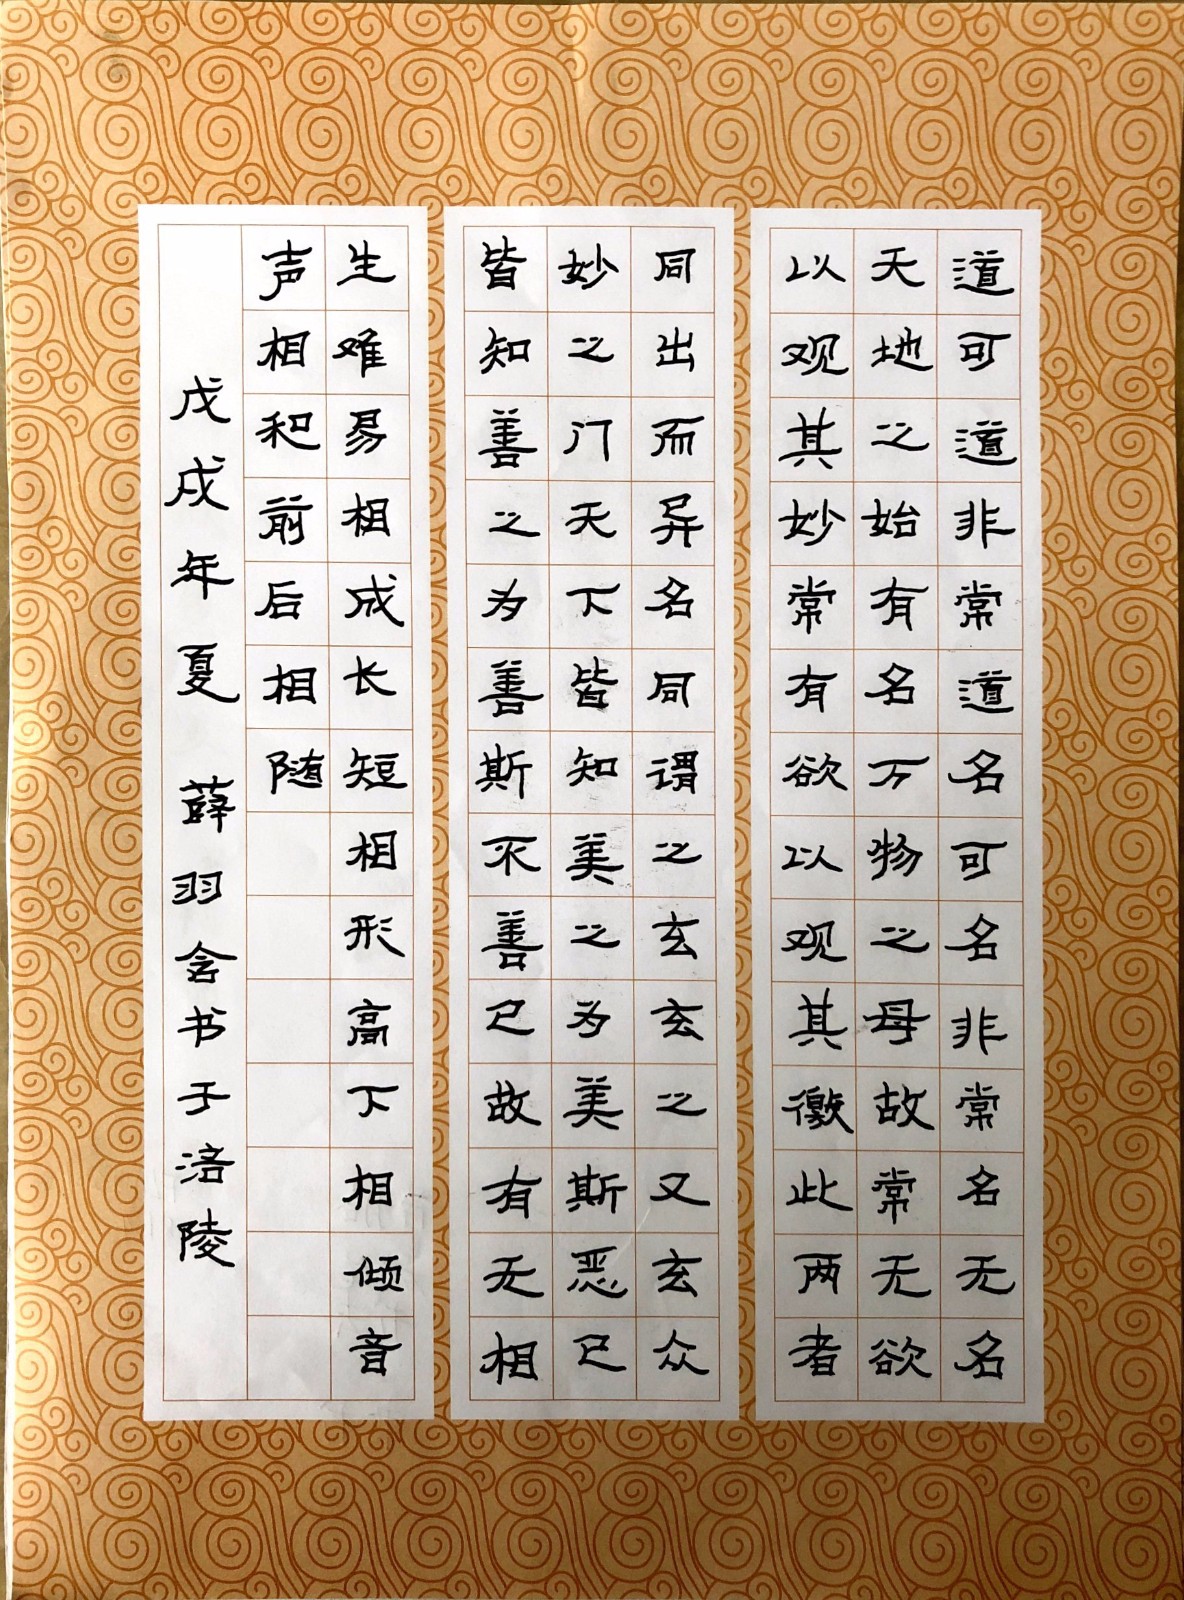 道可道非常道名可名非常名无名
天地之始有名万物之母故常无欲
以观其妙常有欲以观其徼此两者
同出而异名同谓之玄玄之又玄众
妙之门天下皆知美之为美斯恶已
皆知善之为善斯不善已故有无相
生难易相成长短相形高下相倾音
声相和前后相随
戊戌年夏 薛羽含书于涪陵